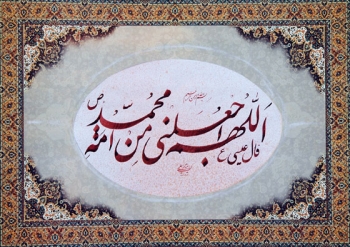 قال عیسی ع
اللهم اجعلنی من امة محمد ص